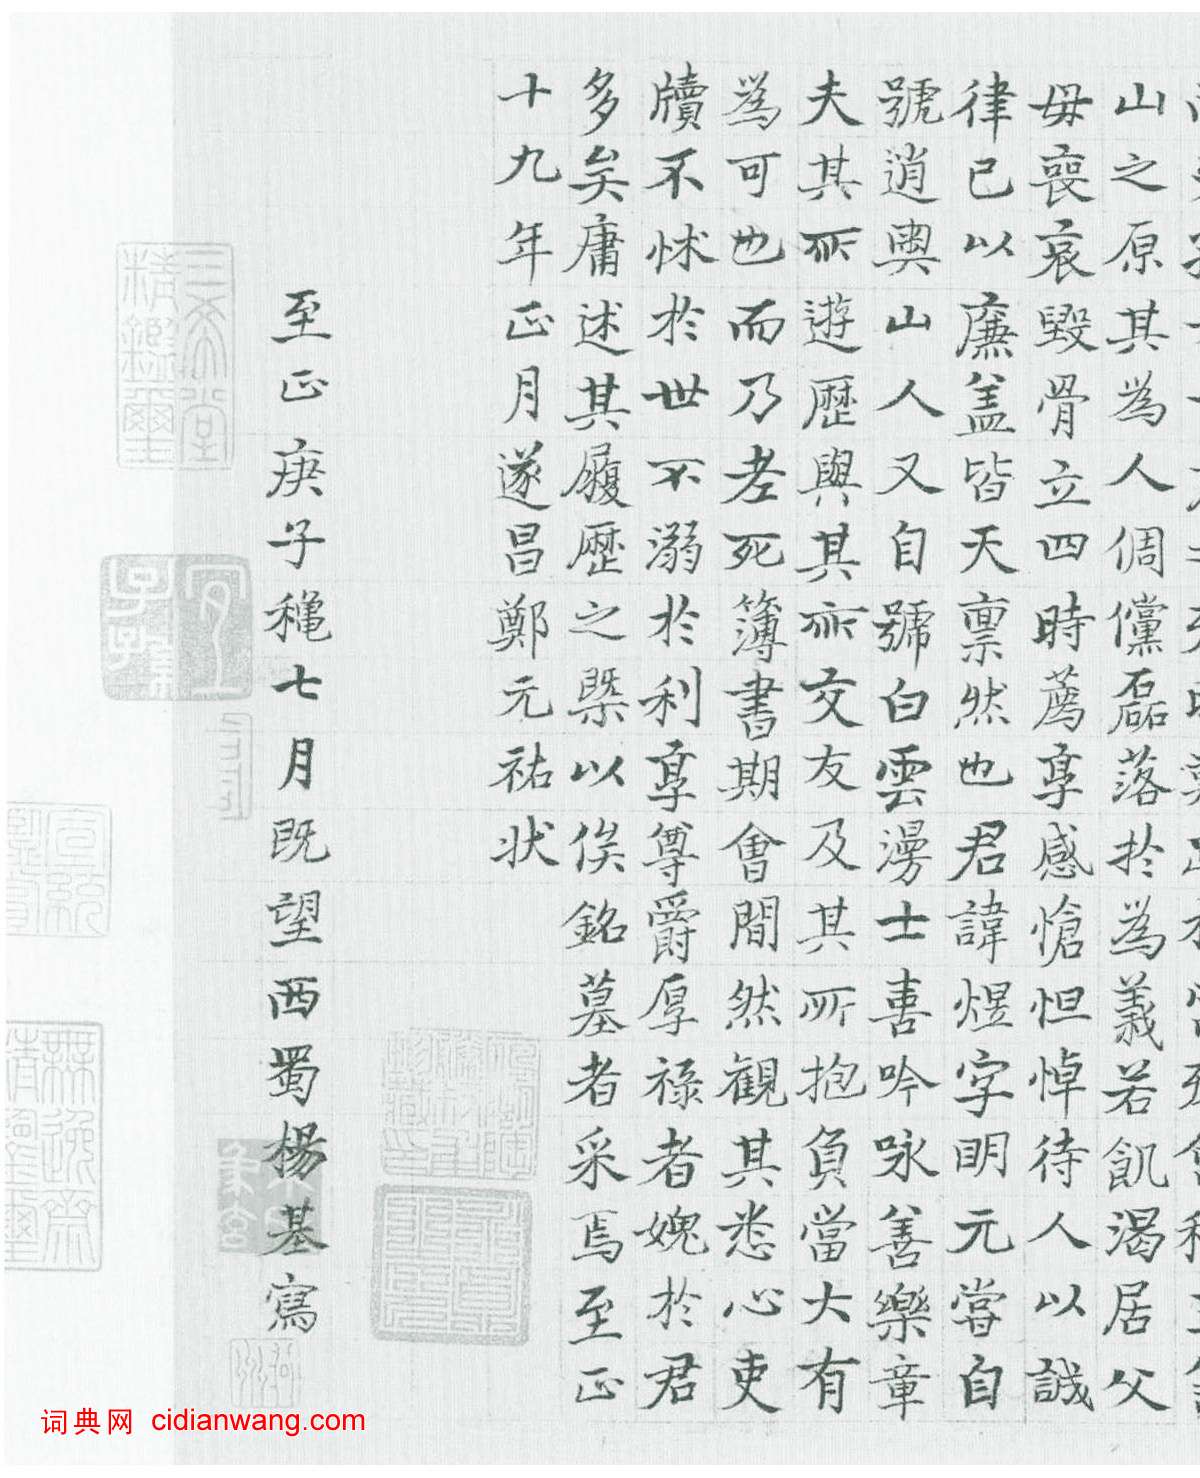 山之原其為人倜儻磊落於為義若飢渴居父
母喪哀毀骨立四時薦享感愴怛悼待人以誠
律已以廉盖皆天稟然也君諱煜字明元嘗自
號逍輿山人又自號白雲漫士善吟咏善樂章
夫其所遊歷與其所交友及其所抱負當大有
為可也而乃老死簿書期會間然觀其悉心吏
牘不怵於世不溺於利享尊爵厚祿者媿於君
多矣庸述其履歷之槩以俟銘墓者采焉至正
十九年正月遂昌鄭元祐状
至正庚子穐七月既望西蜀楊基寫
三希堂
精鑑璽
宜子孫
词典网 cidianwang.com